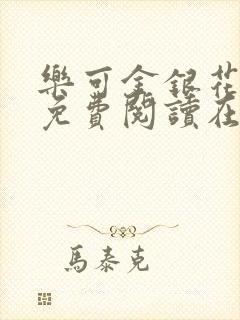 樂可金銀花
免費閱讀在
馬泰克